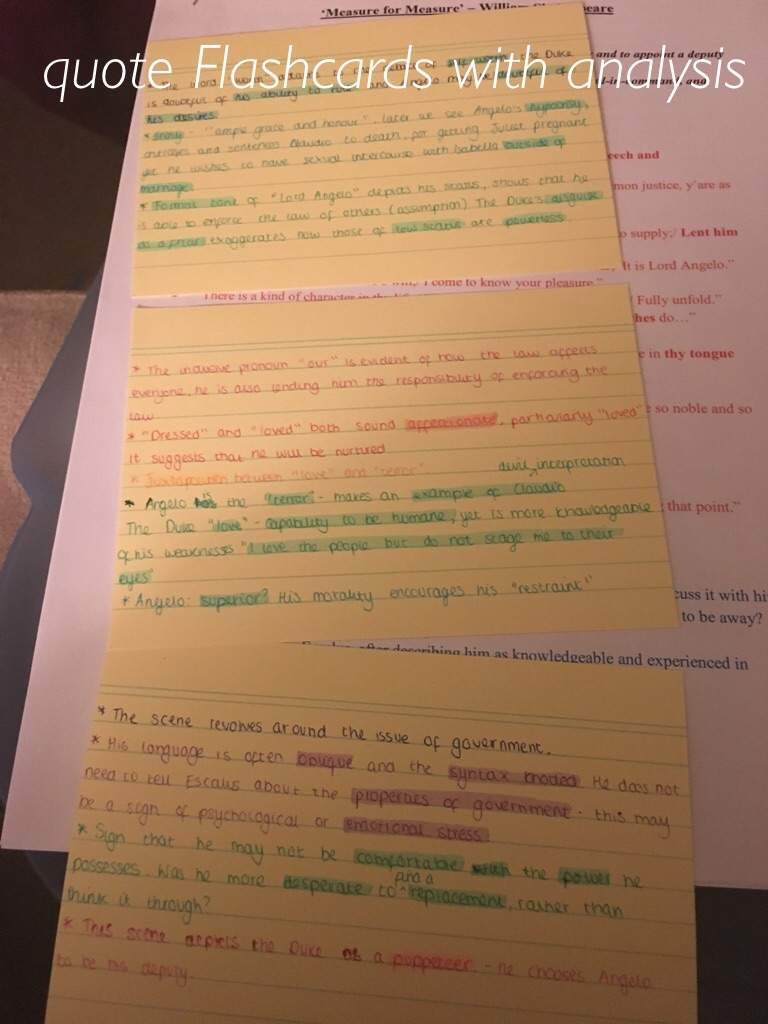 'Measure for Measure' – William
quote Flashcards with analysis
and to appoint a deputy
is doubtful of his ability to rule and Angelo may be doubtful of
his desires
* Irony - "ample grace and honour", later we see Angelo's hypocrisy,
and sentences Claudio to death, for getting Juliet pregnant
yet he wishes to have sexual intercourse with Isabella outside of
marriage
* Formal tone of "Lord Angelo" depicts his status, shows that he
is able to enforce the law of others (assumption) The Duke's disguise
as a friar exaggerates how those of low status are powerless
eech and
mon justice, y'are as
supply;/ Lent him
It is Lord Angelo."
I come to know your pleasure."
There is a kind of character in
Fully unfold."
hes do…"
e in thy tongue
so noble and so
that point."
* The inclusive pronoun "our" is evident of how the law affects
everyone, he is also lending him the responsibility of enforcing the
law
* "Dressed" and "loved" both sound affectionate, particularly "loved"
it suggests that he will be nurtured
* Juxtaposition between "love" and "terror"
interpretation
* Angelo is the "terror" - makes an example of Claudio
The Duke "love" - capability to be humane, yet is more knowledgeable
of his weaknesses "I love the people but do not stage me to their
eyes"
* Angelo: superior? His morality encourages his "restraint"
cuss it with hi
to be away?
after describing him as knowledgeable and experienced in
* The scene revolves around the issue of government.
* His language is often oblique and the syntax knotted. He does not
need to tell Escalus about the properties of government - this may
be a sign of psychological or emotional stress
* Sign that he may not be comfortable with the power he
possesses. Was he more desperate to find a replacement, rather than
think it through?
* This scene depicts the Duke as a puppeteer - he chooses Angelo
to be his deputy.